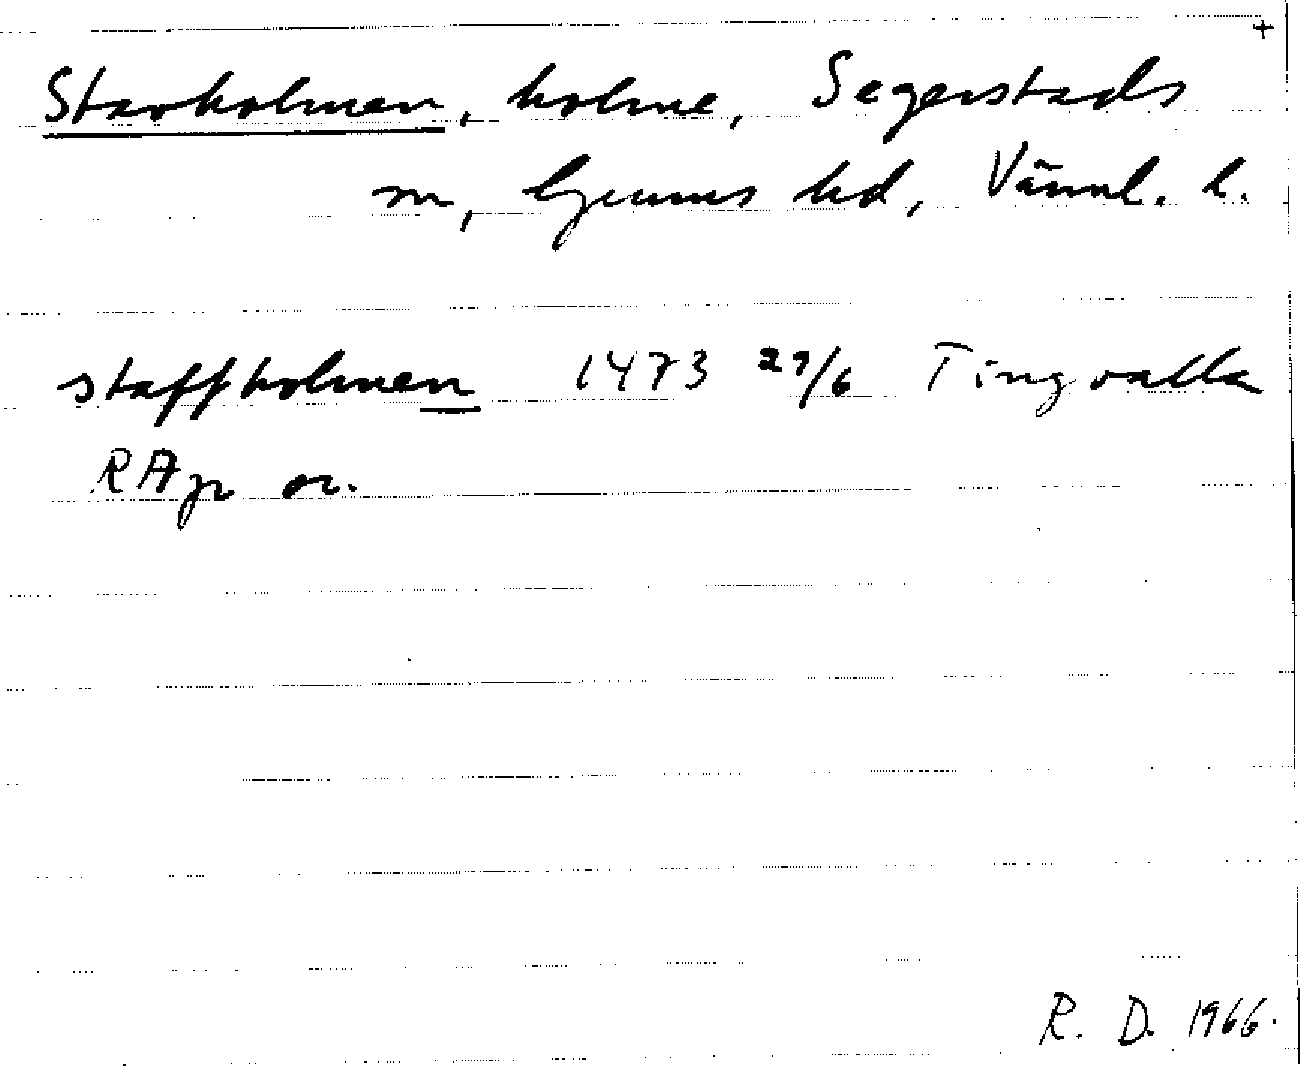 +
Stavholmen, holme, Segerstads
sn, Grums hd, Värml. l.
staffholmen 1473 27/6 Tingvalla
RAp or.
R. D. 1966.